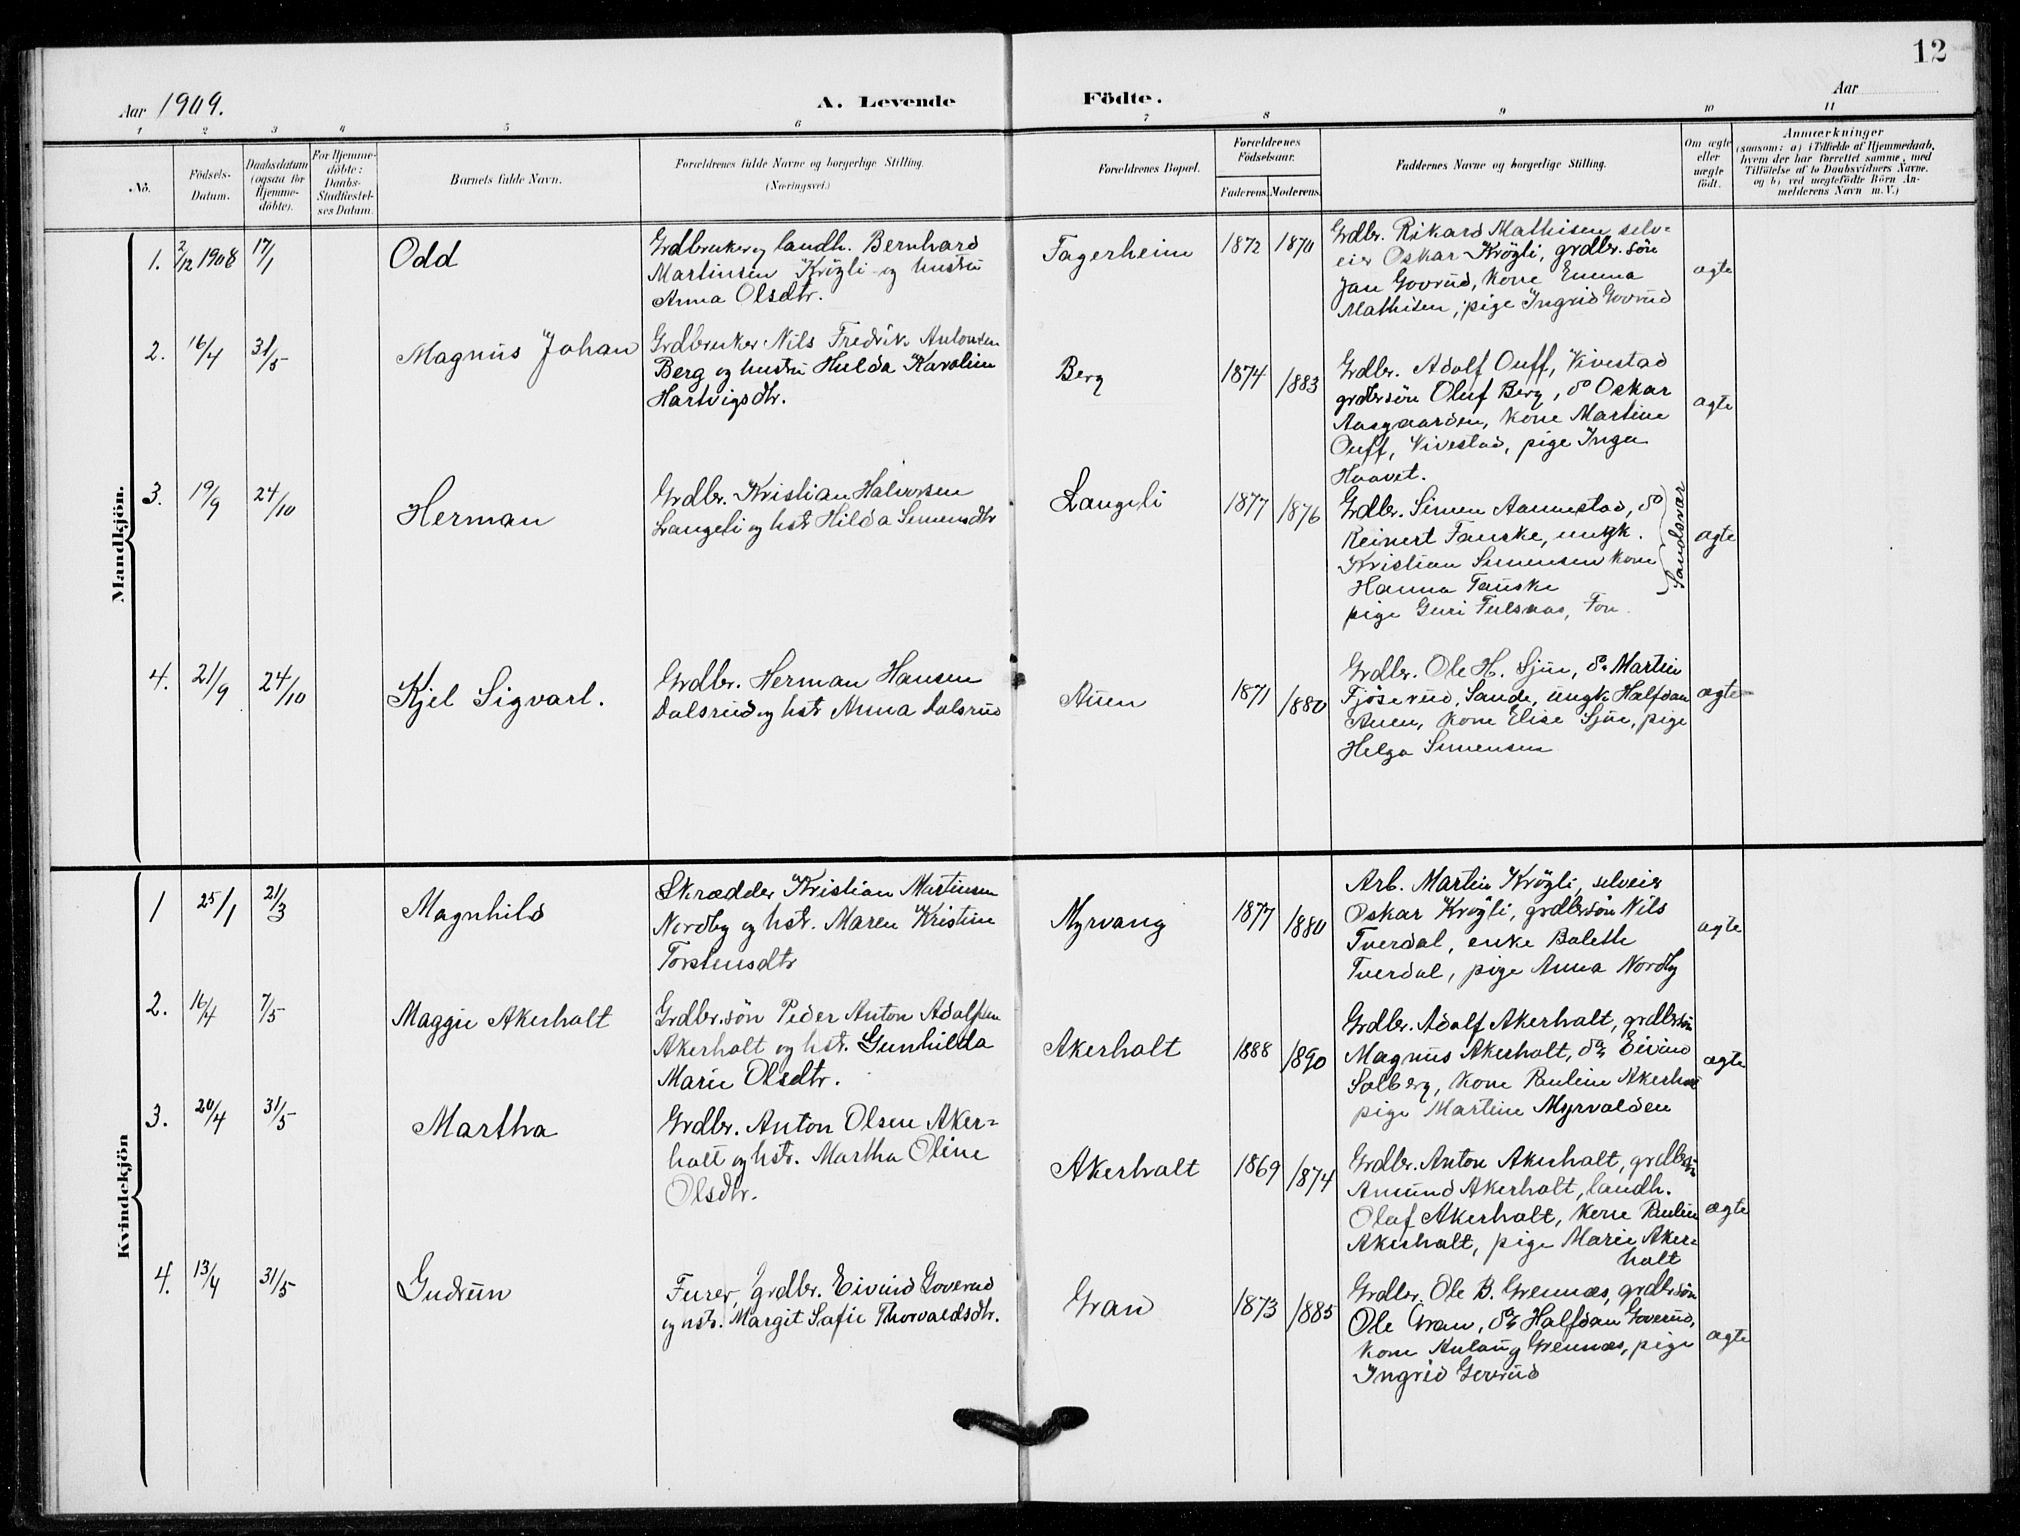 12
Aar 1909.
A. Levende Födte.
Aar
1 2 3 4 5 6 7 8 9 10 11
No.
Födsels-
Datum.
Daabsdatum
(ogsaa for
Hjemme-
döbte).
For Hjemme-
döbte:
Daabs-
Stadfæstel-
ses Datum.
Barnets fulde Navn.
Forældrenes fulde Navne og borgerlige Stilling.
(Næringsvei.)
Forældrenes Bopæl.
Forældrenes
Födselsaar.
Faderens. Moderens.
Faddernes Navne og borgerlige Stilling.
Om ægte
eller
uægte
födt.
Anmærkninger
(saasom: a) i Tilfælde af Hjemmedaab,
hvem der har forrettet samme, med
Tilföielse af to Daabsvidners Navne.
og b) ved uægtefödte Börn An-
melderens Navn m. V.)
Mandkjön.
1. 2/12 1908 17/1 Odd
Grdbruker og landh. Bernhard
Martinsen Krögli og hustru
Anna Olsdtr.
Fagerheim 1872 1870
Grdbr. Rikard Mathisen, selv-
eier Oskar Krögli, grdbr. sön
Jan Govrud, kone Emma
Mathisen, pige Ingrid Govrud
ægte
2. 16/4 31/5 Magnus Johan
Grdbruker Nils Fredrik Antonsen
Berg og hustru Hulda Karoline
Hartvigsdtr.
Berg 1874 1883
Grdbr. Adolf Ouff, Vivestad
grdbrsön Oluf Berg, do Oskar
Aasgaarden, kone Martine
Ouff, Vivestad, pige Inga
Haavet.
ægte
3. 19/9 24/10 Herman
Grdbr. Kristian Halvorsen
Langeli og hstr Hilda Simensdtr
Langeli 1877 1876
Grdbr. Simen Aannestad, do
Reinert Fauske, ungk.
Kristian Simensen kone
Hanna Fauske
Sandsvær
pige Guri Fulsaas, Fon.
ægte
4. 21/9 24/10 Kjel Sigvart.
Grdbr. Herman Hansen
Dalsrud og hstr Anna Dalsrud
Auen 1871 1880
Grdbr. Ole H. Sjue, do Martin
Fjöserud, Sande, ungk. Halfdan
Auen, kone Elise Sjue, pige
Helga Simensen
ægte
Kvindekjön
1 25/1 21/3 Magnhild
Skrædder Kristian Martinsen
Nordby og hstr. Maren Kristine
Torstensdtr
Myrvang 1877 1880
Arb. Martin Krögli, selveier
Oskar Krögli, grdbrsön Nils
Tverdal, enke Bolette
Tverdal, pige Anna Nordby
ægte
2. 16/4 7/5 Maggie Akerholt
Grdbr.sön Peder Anton Adolfsen
Akerholt og hstr. Gunhilda
Marie Olsdtr.
Akerholt 1888 1890
Grdbr. Adolf Akerholt, grdbrsön
Magnus Akerholt, do Eivind
Solberg, kone Pauline Akerholt
pige Martine Myrvolden
ægte
3. 20/4 31/5 Martha
Grdbr. Anton Olsen Aker-
holt og hstr. Martha Oline
Olsdtr.
Akerholt 1869 1874
Grdbr. Anton Akerholt, grdbrsön
Amund Akerholt, landh.
Olaf Akerholt, kone Pauline
Akerholt, pige Marie Aker-
holt
ægte
4. 13/4 31/5 Gudrun
Furer, grdbr. Eivind Goverud
og hstr. Margit Sofie Thorvaldsdtr.
Gran 1873 1885
Grdbr. Ole B. Grennæs, grdbrsön
Ole Gran, do Halfdan Goverud,
kone Anlaug Grennæs, pige
Ingrid Govrud
ægte